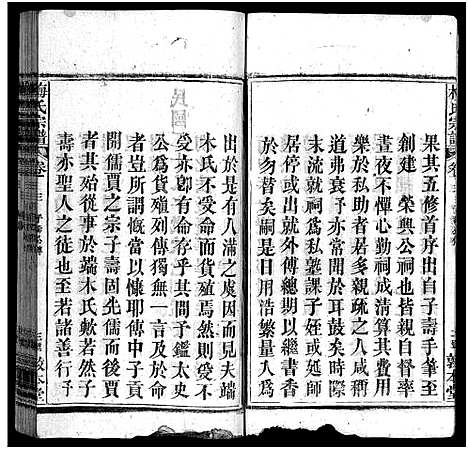 梅氏宗譜
果其五修首序出自子壽手
創建　榮興公祠也皆親自督率
晝夜不憚心勤祠成清算其尤
樂於私助者居多親疏之人咸稱
道弗衰亦常聞於耳鼓矣時際
末流就祠爲私塾課子或延師
或出就外傅總期以繼書香
於勿替矣嗣子因用浩繁量人
敦本堂
出於有八滿之虞因而見夫端
木氏不受命而貨殖焉然則受不
受亦卽有命存乎其間予鑑太史
公爲貨殖列傳獨無一言及於命
者豈所謂慷慨耶傳中子貢
開儒賈之宗子壽固先儒而後賈
者其殆從於端木氏歟若然子
壽亦聖人之徒也至若諸善行子
梅氏宗譜
卷三
敦本堂